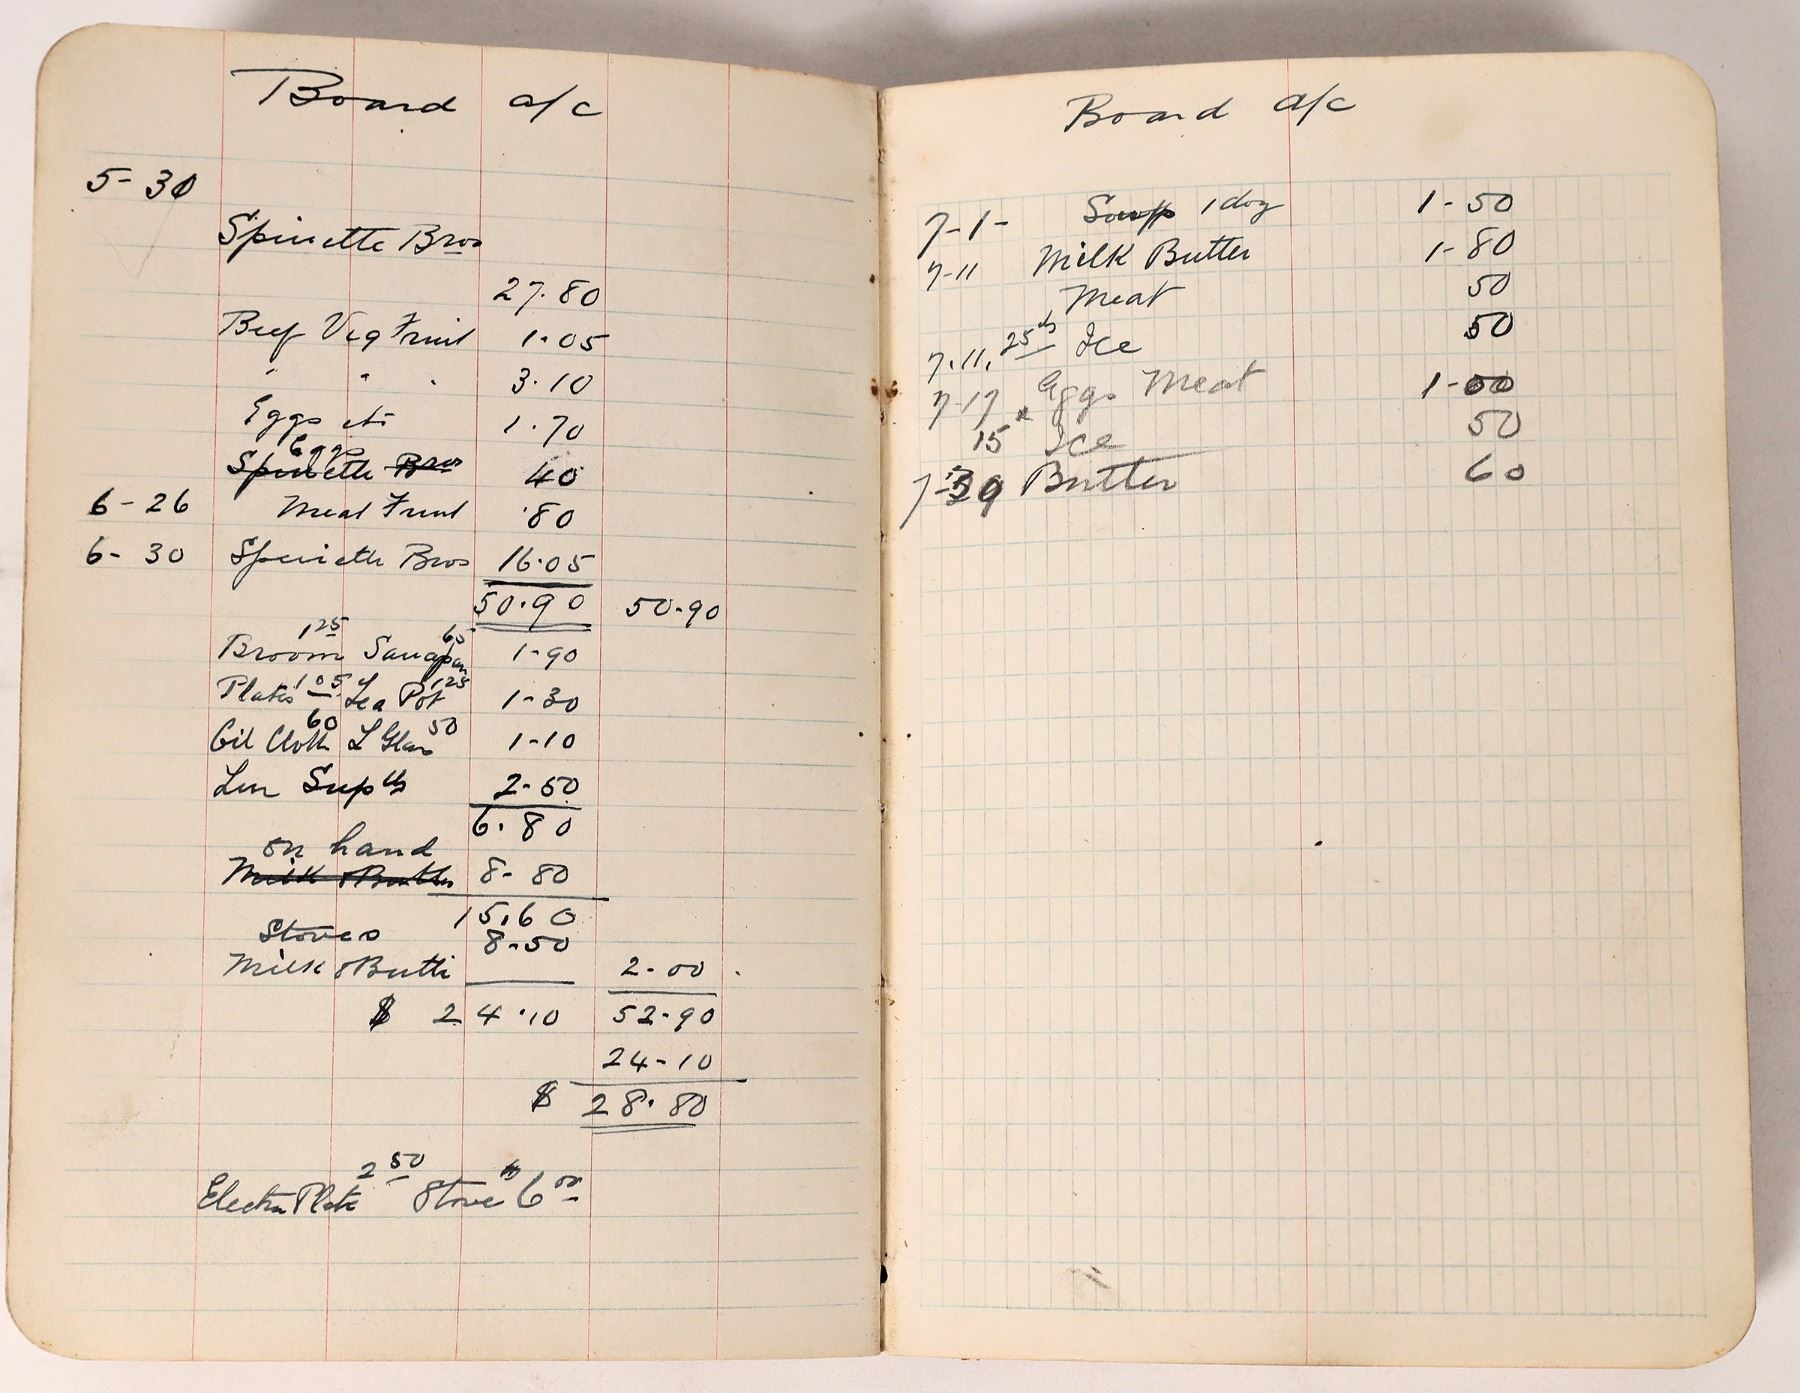 Board a/c
5-30
Spinette Bros
27.80
Beef Veg Fruit 1.05
" " " 3.10
Eggs etc 1.70
Eggs
Spinette Bros 40
6-26 Meat Fruit .80
6-30 Spinette Bros 16.05
50.90 50-90
125 65
Broom Saucepan 1-90
Plates 105 Tea Pot 125 1-30
60 50
Oil Cloth L Glass 1-10
Lun Sup 2-50
6.80
on hand
Milk & Butter 8-80
15.60
Stoves 8-50
Milk & Butter 2-00
$ 24.10 52-90
24-10
$ 28.80
2 50
Electric Plate Stove 6 00
Board a/c
7-1- 1 doz 1-50
7-11 Milk Butter 1-80
Meat 50
7.11. 25 Ice 50
7-17 Eggs Meat 1-00
15 Ice 50
7-29 Butter 60